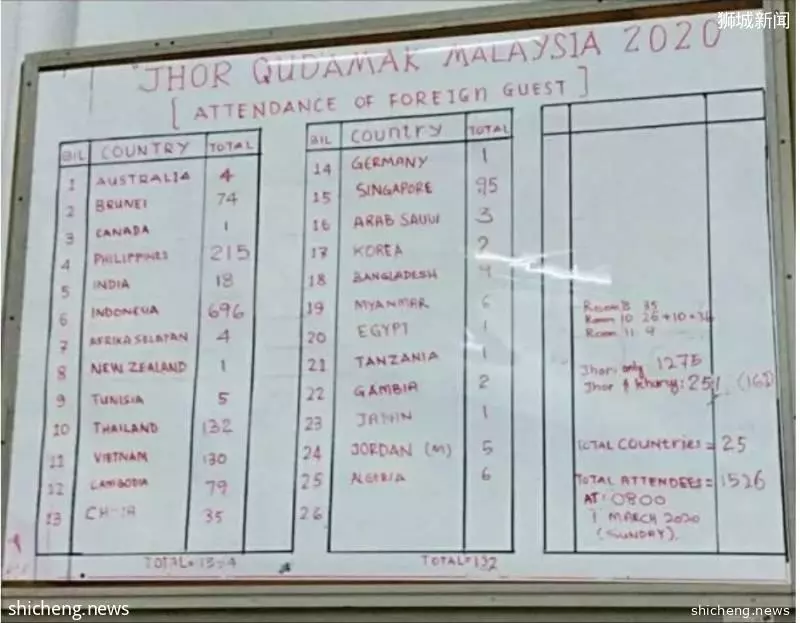 狮城新闻
JHOR QUDAMAK MALAYSIA 2020
[ ATTENDANCE OF FOREIGN GUEST ]
BIL COUNTRY TOTAL
1 AUSTRALIA 4
2 BRUNEI 74
3 CANADA 1
4 PHILIPPINES 215
5 INDIA 18
6 INDONESIA 696
7 AFRIKA SELATAN 4
8 NEW ZEALAND 1
9 TUNISIA 5
10 THAILAND 132
11 VIETNAM 130
12 CAMBODIA 79
13 35
TOTAL=
BIL Country TOTAL
14 GERMANY 1
15 SINGAPORE 95
16 ARAB SAUDI 3
17 KOREA 2
18 BANGLADESH
19 MYANMAR 6
20 EGYPT 1
21 TANZANIA 1
22 GAMBIA 2
23 JAPAN 1
24 JORDAN (M) 5
25 ALGERIA 6
26
TOTAL=132
Room 8 35
Room 10 26+10=36
Room 11 9
Jhor only 1275
Jhor & Khuruj: 251
TOTAL COUNTRIES = 25
TOTAL ATTENDEES = 1526
AT: 0800
1 MARCH 2020
(SUNDAY).
shicheng.news
shicheng.news